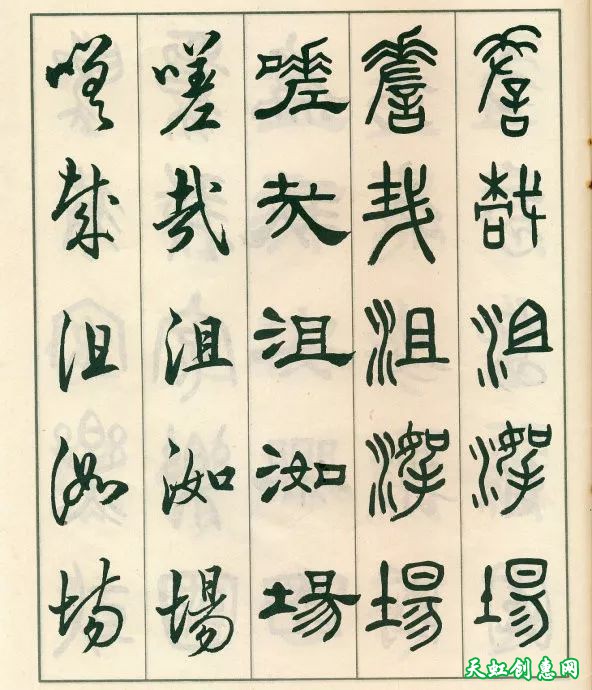 嗟哉沮洳場
嗟哉沮洳場
嗟哉沮洳場
嗟哉沮洳場
嗟哉沮洳場
天虹创惠网